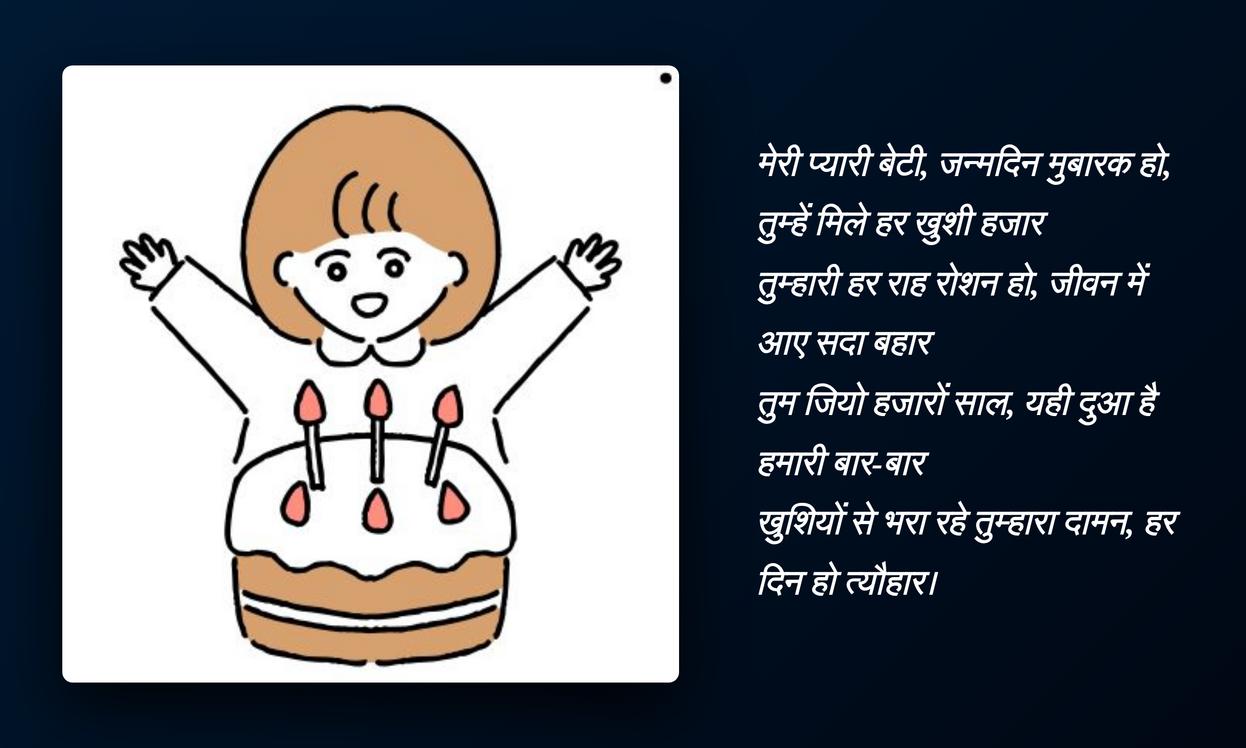 मेरी प्यारी बेटी, जन्मदिन मुबारक हो,
तुम्हें मिले हर खुशी हजार
तुम्हारी हर राह रोशन हो, जीवन में
आए सदा बहार
तुम जियो हजारों साल, यही दुआ है
हमारी बार-बार
खुशियों से भरा रहे तुम्हारा दामन, हर
दिन हो त्यौहार।